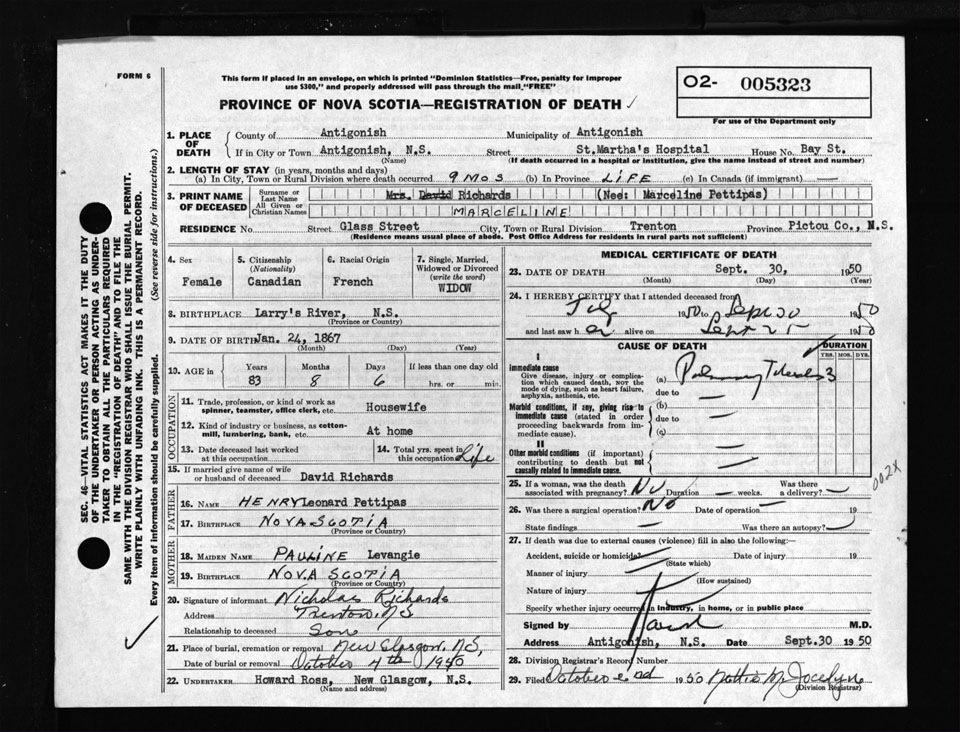 FORM 6
This form if placed in an envelope, on which is printed "Dominion Statistics—Free, penalty for improper
use $300," and properly addressed will pass through the mail "FREE"
PROVINCE OF NOVA SCOTIA—REGISTRATION OF DEATH ✓
O2- 005323
For use of the Department only
1. PLACE OF DEATH
County of Antigonish Municipality of Antigonish
If in City or Town Antigonish, N.S. Street St.Martha's Hospital House No. Bay St.
(Name) (If death occurred in a hospital or institution, give the name instead of street and number)
2. LENGTH OF STAY (in years, months and days)
(a) In City, Town or Rural Division where death occurred 9 MOS (b) In Province LIFE (c) In Canada (if immigrant) —
3. PRINT NAME OF DECEASED
Surname or Last Name Mrs. David Richards (Nee: Marceline Pettipas)
All Given or Christian Names MARCELINE
RESIDENCE No. Street Glass Street City, Town or Rural Division Trenton Province Pictou Co., N.S.
(Residence means usual place of abode. Post Office Address for residents in rural parts not sufficient)
4. Sex
Female
5. Citizenship
(Nationality)
Canadian
6. Racial Origin
French
7. Single, Married, Widowed or Divorced
(write the word)
WIDOW
8. BIRTHPLACE Larry's River, N.S.
(Province or Country)
9. DATE OF BIRTH Jan. 24, 1867
(Month) (Day) (Year)
10. AGE in
Years Months Days If less than one day old
83 8 6 hrs. or min.
OCCUPATION
11. Trade, profession, or kind of work as
spinner, teamster, office clerk, etc. Housewife
12. Kind of industry or business, as cotton-
mill, lumbering, bank, etc. At home
13. Date deceased last worked
at this occupation
14. Total yrs. spent in
this occupation Life
15. If married give name of wife
or husband of deceased David Richards
FATHER
16. NAME HENRY Leonard Pettipas
17. BIRTHPLACE NOVA SCOTIA
(Province or Country)
MOTHER
18. MAIDEN NAME PAULINE Levangie
19. BIRTHPLACE NOVA SCOTIA
(Province or Country)
20. Signature of informant Nicholas Richards
Address Trenton, NS
Relationship to deceased Son
21. Place of burial, cremation or removal New Glasgow, NS,
Date of burial or removal October 4th 1950
22. UNDERTAKER Howard Ross, New Glasgow, N.S.
(Name and address)
MEDICAL CERTIFICATE OF DEATH
23. DATE OF DEATH Sept. 30, 1950
(Month) (Day) (Year)
24. I HEREBY CERTIFY that I attended deceased from
1950 to Sept 30 1950
and last saw her alive on Sept 25 1950
CAUSE OF DEATH
DURATION
YRS. MOS. DYS.
I
Immediate cause
Give disease, injury or complica-
tion which caused death, NOT the
mode of dying, such as heart failure,
asphyxia, asthenia, etc.
(a) Pulmonary
due to —
Morbid conditions, if any, giving rise to
immediate cause (stated in order
proceeding backwards from im-
mediate cause).
(b)
due to —
(c)
II
Other morbid conditions (if important)
contributing to death but not
causally related to immediate cause.
002X
25. If a woman, was the death
associated with pregnancy? No Duration — weeks. Was there
a delivery? —
26. Was there a surgical operation? No Date of operation — 19
State findings — Was there an autopsy? —
27. If death was due to external causes (violence) fill in also the following:—
Accident, suicide or homicide? Date of injury 19
(State which)
Manner of injury
(How sustained)
Nature of injury
Specify whether injury occurred in industry, in home, or in public place
Signed by M.D.
Address Antigonish, N.S. Date Sept.30 1950
28. Division Registrar's Record Number
29. Filed October 2nd 1950 Mattie M Jocelyn
(Division Registrar)
SEC. 46—VITAL STATISTICS ACT MAKES IT THE DUTY
OF THE UNDERTAKER OR PERSON ACTING AS UNDER-
TAKER TO OBTAIN ALL THE PARTICULARS REQUIRED
IN THE "REGISTRATION OF DEATH" AND TO FILE THE
SAME WITH THE DIVISION REGISTRAR WHO SHALL ISSUE THE BURIAL PERMIT.
WRITE PLAINLY WITH UNFADING INK. THIS IS A PERMANENT RECORD.
Every item of information should be carefully supplied. (See reverse side for instructions.)